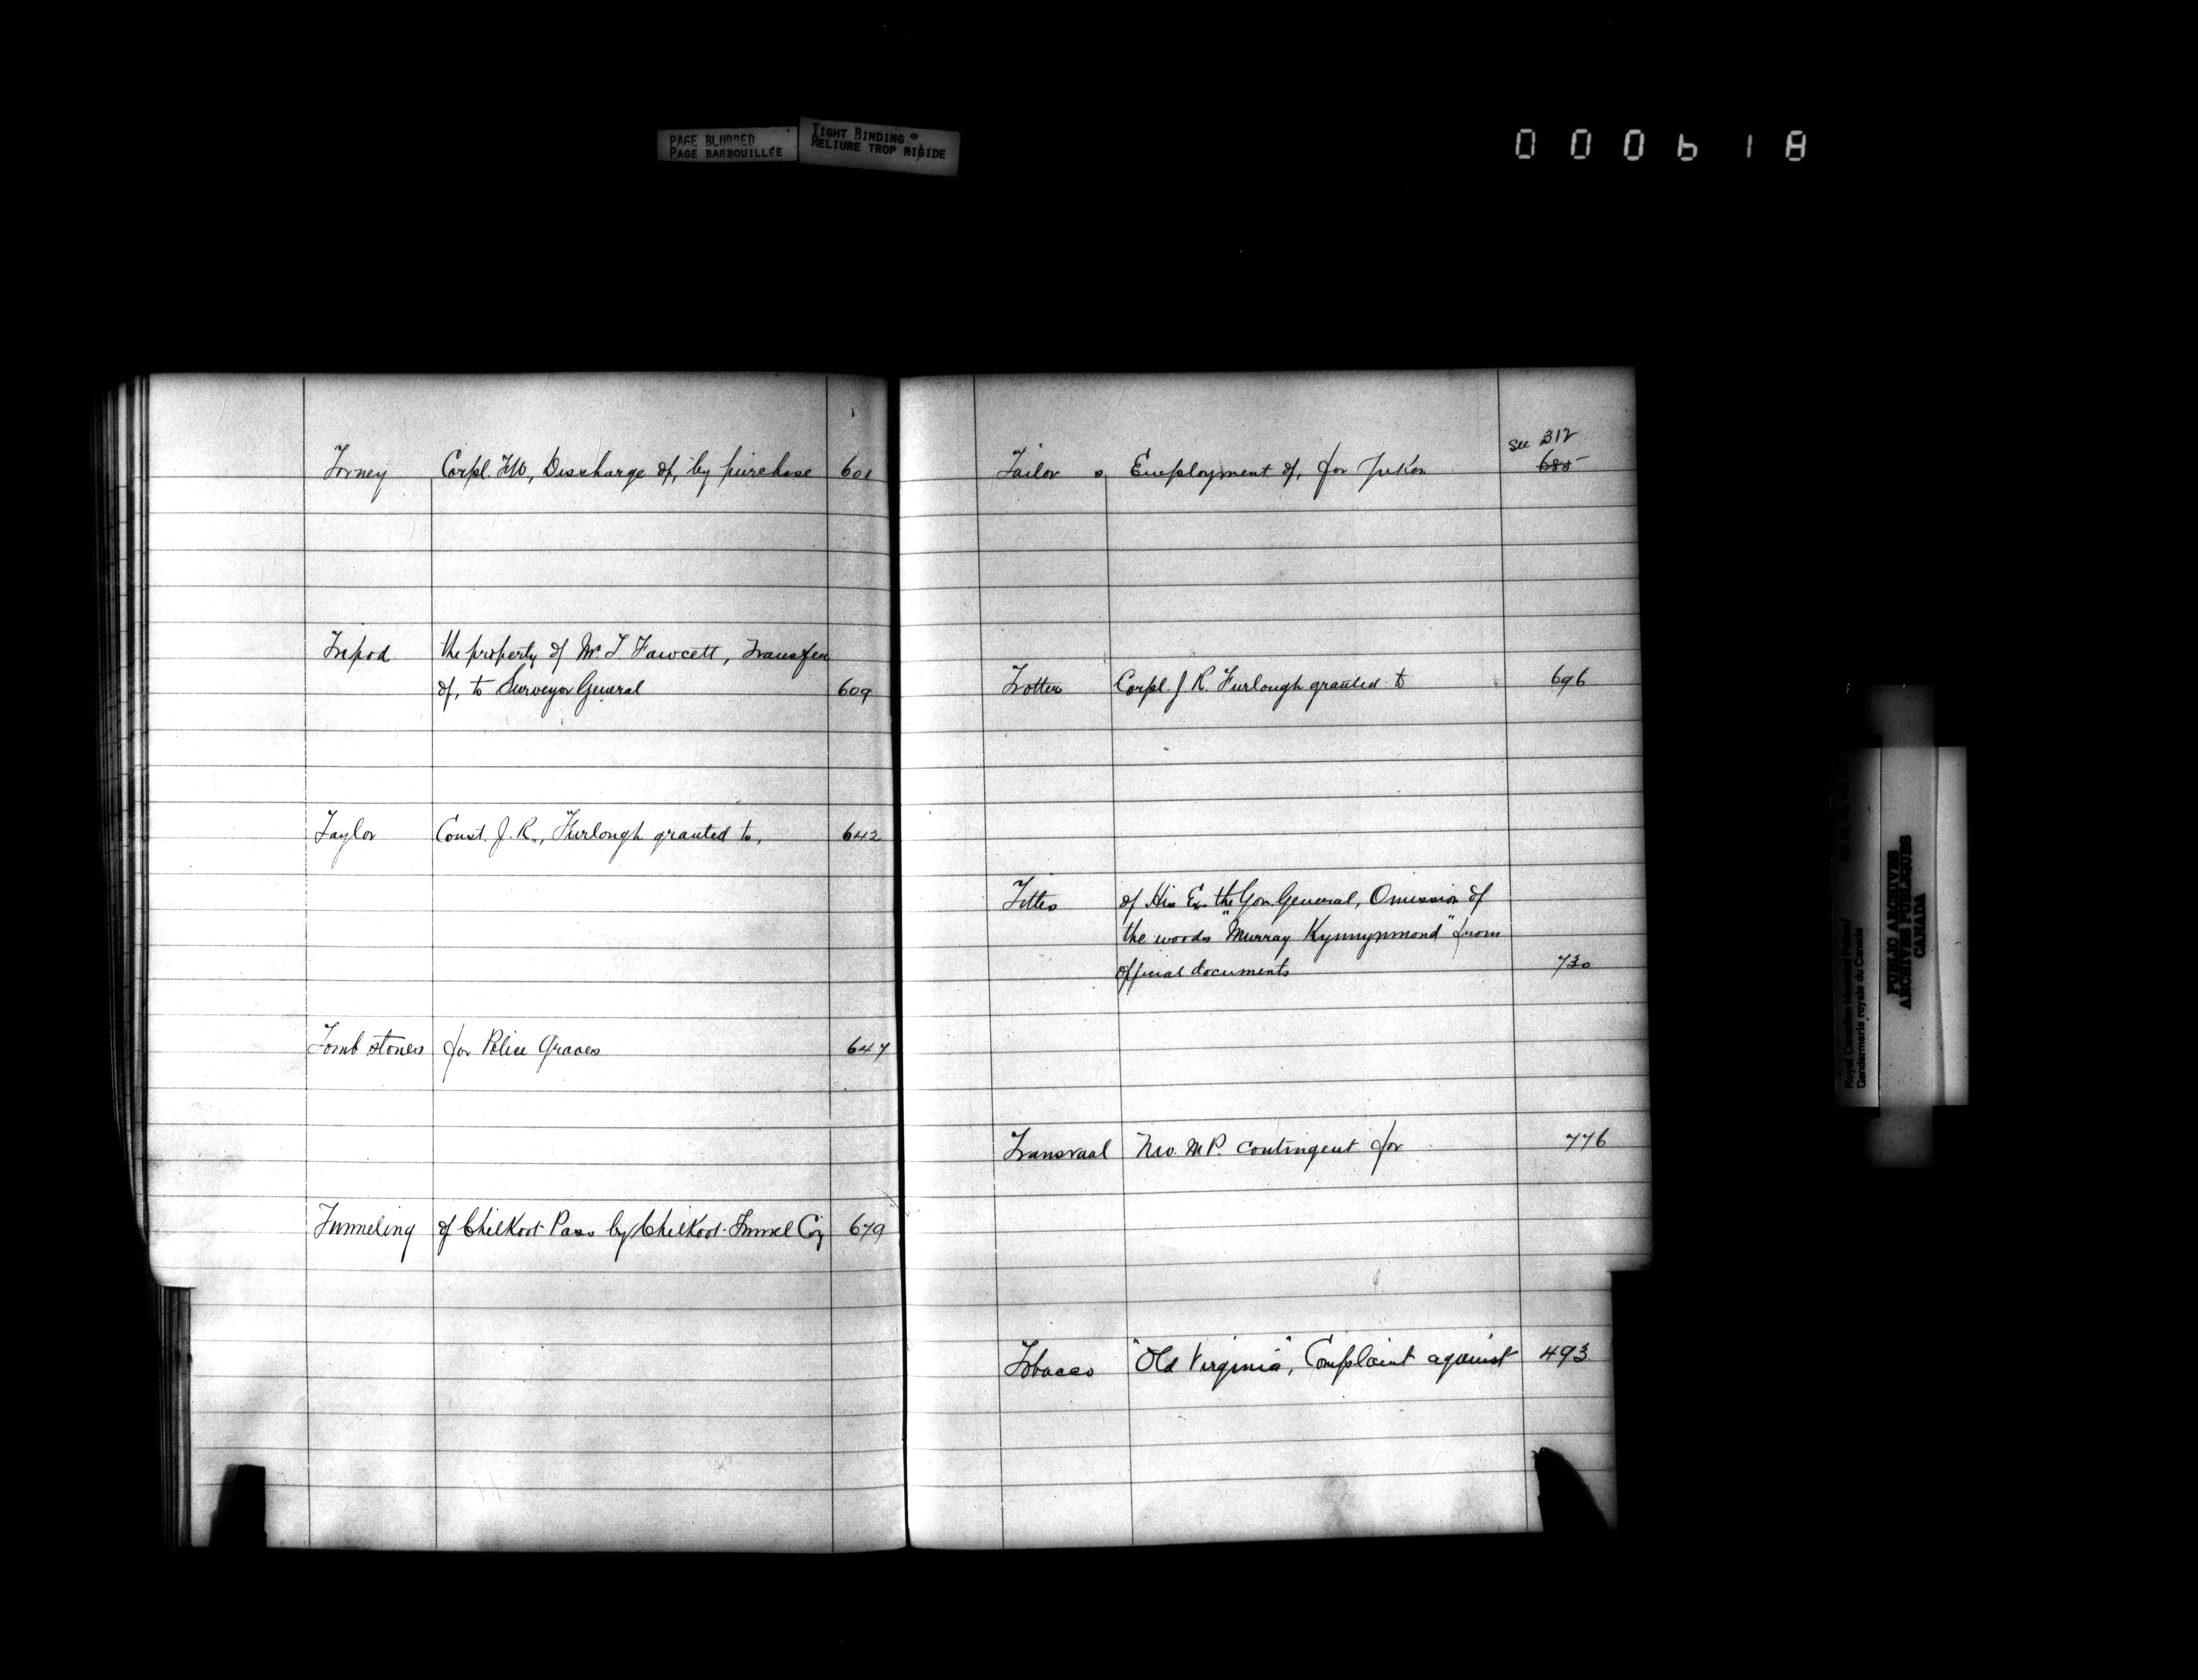 PAGE BLURRED
PAGE BARBOUILLÉE
TIGHT BINDING
RELIURE TROP RIGIDE
000618
Torney Corpl. , Discharge of, by purchase 601
Tripod the property of Mr T Fawcett, Transfer
of, to Surveyor General 609
Taylor Const. J. R., Furlough granted to, 642
Tomb stones for Police Graves 647
Tunneling of Chilkoot Pass by Chilkoot Tunnel Coy 679
See 312
Tailor s, Employment of, for Yukon 685
Trotter Corpl. J R. Furlough granted to 696
Titles of His Ex. the Gov. General, Omission of
the words "Murray Kynnynmond" from
official documents 730
Transvaal N.W.M.P. contingent for 776
Tobacco "Old Virginia", Complaint against 493
Royal Canadian Mounted Police/
Gendarmerie royale du Canada
PUBLIC ARCHIVES
ARCHIVES PUBLIQUES
CANADA